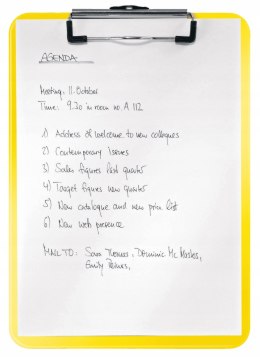 AGENDA
Meeting, 11. October
Time: 9.30 in room no. A 112
1) Address of welcome to new collegues
2) Contemporary Issues
3) Sales figures last quarter
4) Target figures new quarter
5) New catalogue and new price list
6) New web presence
MAIL TO: Sara Thomas, Dominic Mc
Emily